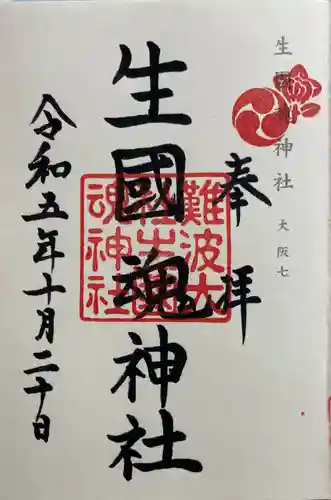 生國魂神社 大阪七
奉拝
生國魂神社
難波大
社生國
魂神社
令和五年十月二十日